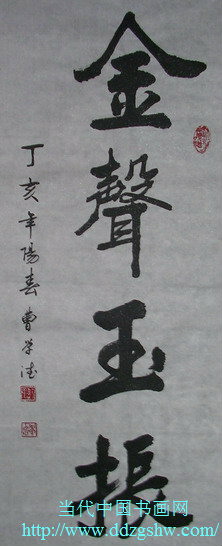 金聲玉振
丁亥年陽春曹学德
当代中国书画网
http://www.ddzgshw.com